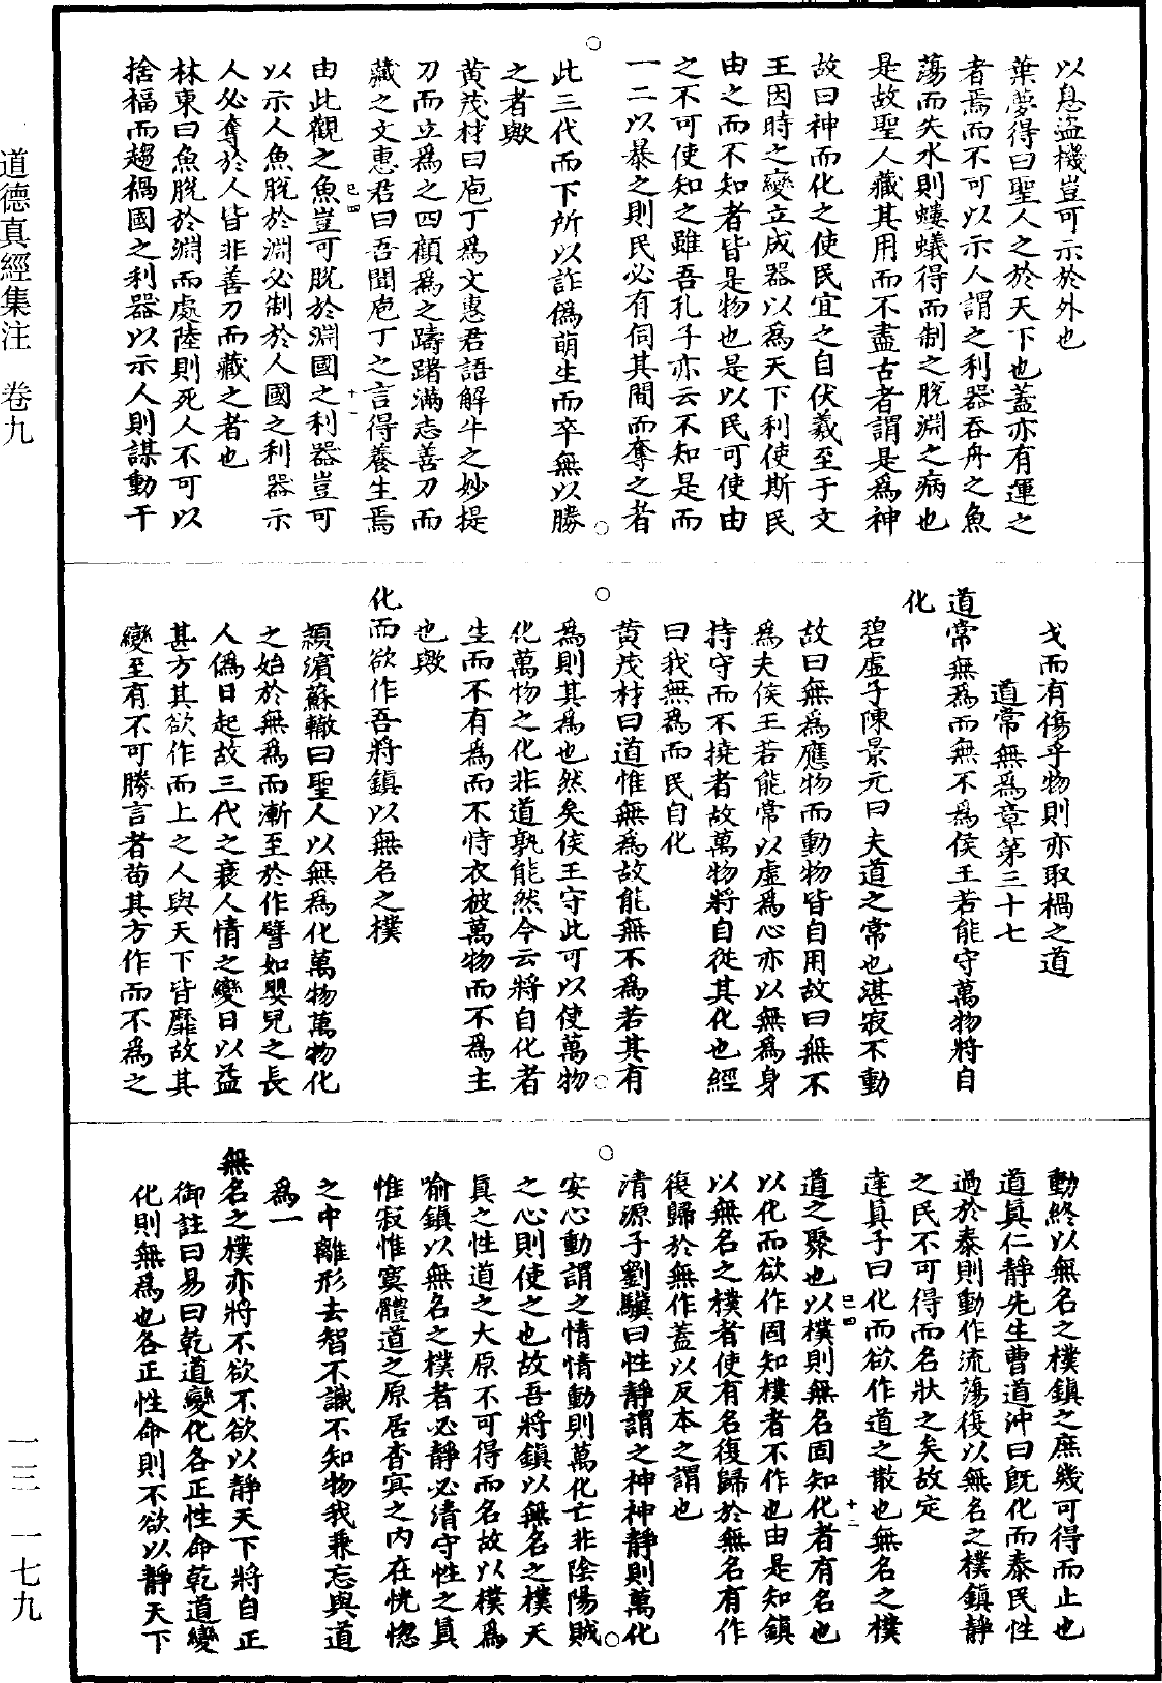 以息盜機豈可示於外也
葉夢得曰聖人之於天下也蓋亦有運之
者焉而不可以示人謂之利器吞舟之魚
蕩而失水則螻蟻得而制之脫淵之病也
是故聖人藏其用而不盡古者謂是爲神
故曰神而化之使民宜之自伏羲至于文
王因時之變立成器以爲天下利使斯民
由之而不知者皆是物也是以民可使由
之不可使知之雖吾孔子亦云不知是而
一二以暴之則民必有伺其間而奪之者
此三代而下所以詐僞萌生而卒無以勝
之者歟
黄茂材曰庖丁爲文惠君語解牛之妙提
刀而立爲之四顧爲之躊躇滿志善刀而
藏之文惠君曰吾聞庖丁之言得養生焉
由此觀之魚豈可脫於淵國之利器豈可
以示人魚脫於淵必制於人國之利器示
人必奪於人皆非善刀而藏之者也
林東曰魚脫於淵而處陸則死人不可以
捨福而趨禍國之利器以示人則謀動干
戈而有傷乎物則亦取禍之道
道常無爲章第三十七
道常無爲而無不爲侯王若能守萬物將自
化
碧虛子陳景元曰夫道之常也湛寂不動
故曰無爲應物而動物皆自用故曰無不
爲夫侯王若能常以虛爲心亦以無爲身
持守而不撓者故萬物將自從其化也經
曰我無爲而民自化
黄茂材曰道惟無爲故能無不爲若其有
爲則其爲也然矣侯王守此可以使萬物
化萬物之化非道孰能然今云將自化者
生而不有爲而不恃衣被萬物而不爲主
也歟
化而欲作吾將鎮以無名之樸
潁濱蘇轍曰聖人以無爲化萬物萬物化
之始於無爲而漸至於作譬如嬰兒之長
人僞日起故三代之衰人情之變日以益
甚方其欲作而上之人與天下皆靡故其
變至有不可勝言者苟其方作而不爲之
動終以無名之樸鎮之庶幾可得而止也
道真仁靜先生曹道沖曰既化而泰民性
過於泰則動作流蕩復以無名之樸鎮靜
之民不可得而名狀之矣故定
達真子曰化而欲作道之散也無名之樸
道之聚也以樸則無名固知化者有名也
以化而欲作固知樸者不作也由是知鎮
以無名之樸者使有名復歸於無名有作
復歸於無作蓋以反本之謂也
清源子劉驥曰性靜謂之神神靜則萬化
安心動謂之情情動則萬化亡非陰陽賊
之心則使之也故吾將鎮以無名之樸天
真之性道之大原不可得而名故以樸爲
喻鎮以無名之樸者必靜必清守性之真
惟寂惟寞體道之原居杳冥之內在恍惚
之中離形去智不識不知物我兼忘與道
爲一
無名之樸亦將不欲不欲以靜天下將自正
御註曰易曰乾道變化各正性命乾道變
化則無爲也各正性命則不欲以靜天下
已四
十一
已四
十二
道德真經集注 卷九
一三—一七九